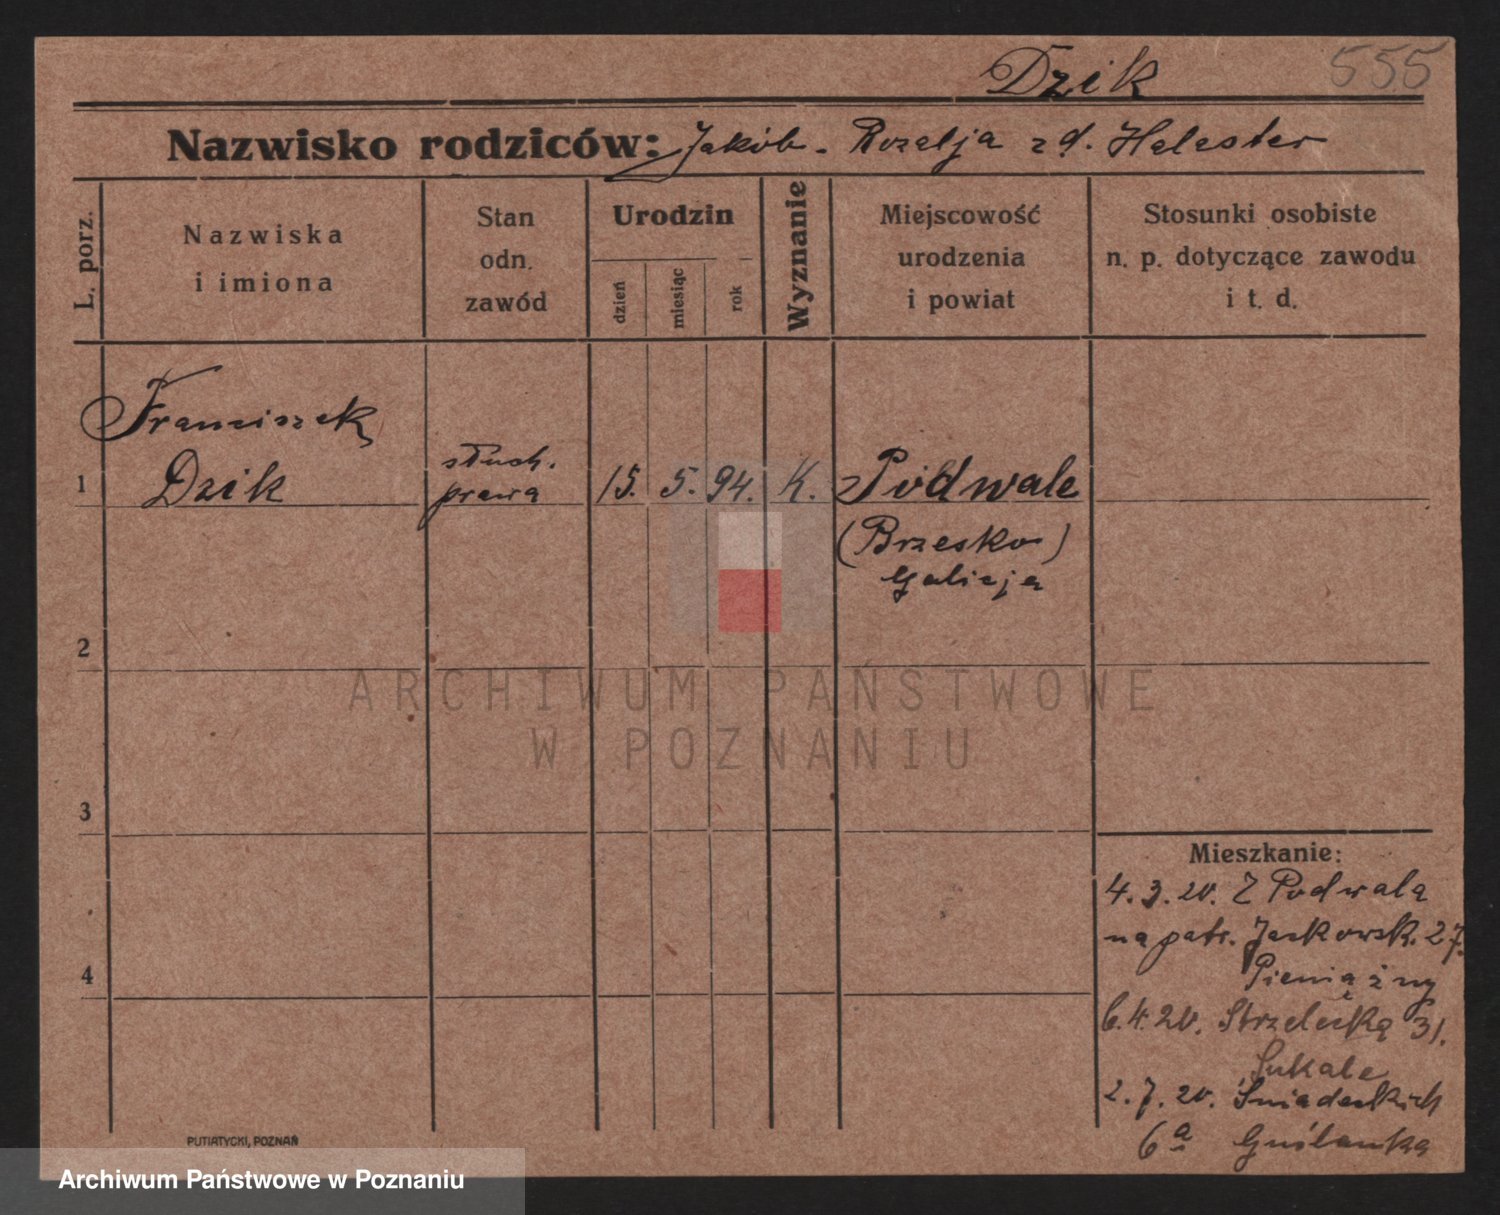 Dzik 555
Nazwisko rodziców: Jakób. Rozalja z d. Halaster
L. porz.
Nazwiska
i imiona
Stan
odn.
zawód
Urodzin
dzień
miesiąc
rok
Wyznanie
Miejscowość
urodzenia
i powiat
Stosunki osobiste
n. p. dotyczące zawodu
i t. d.
Franciszek
1 Dzik
słuch.
prawa
15. 5. 94. K. Podwale
(Brzesko)
Galicja
2
3
4
Mieszkanie:
4.3.20. Z Podwala
na patr. Jackowsk. 27.
Pieniężny
6.4.20. Strzelecka 31.
Sukale
2.7.20. Śniadeckich
6a
PUTIATYCKI, POZNAŃ
ARCHIWUM PAŃSTWOWE
W POZNANIU
Archiwum Państwowe w Poznaniu